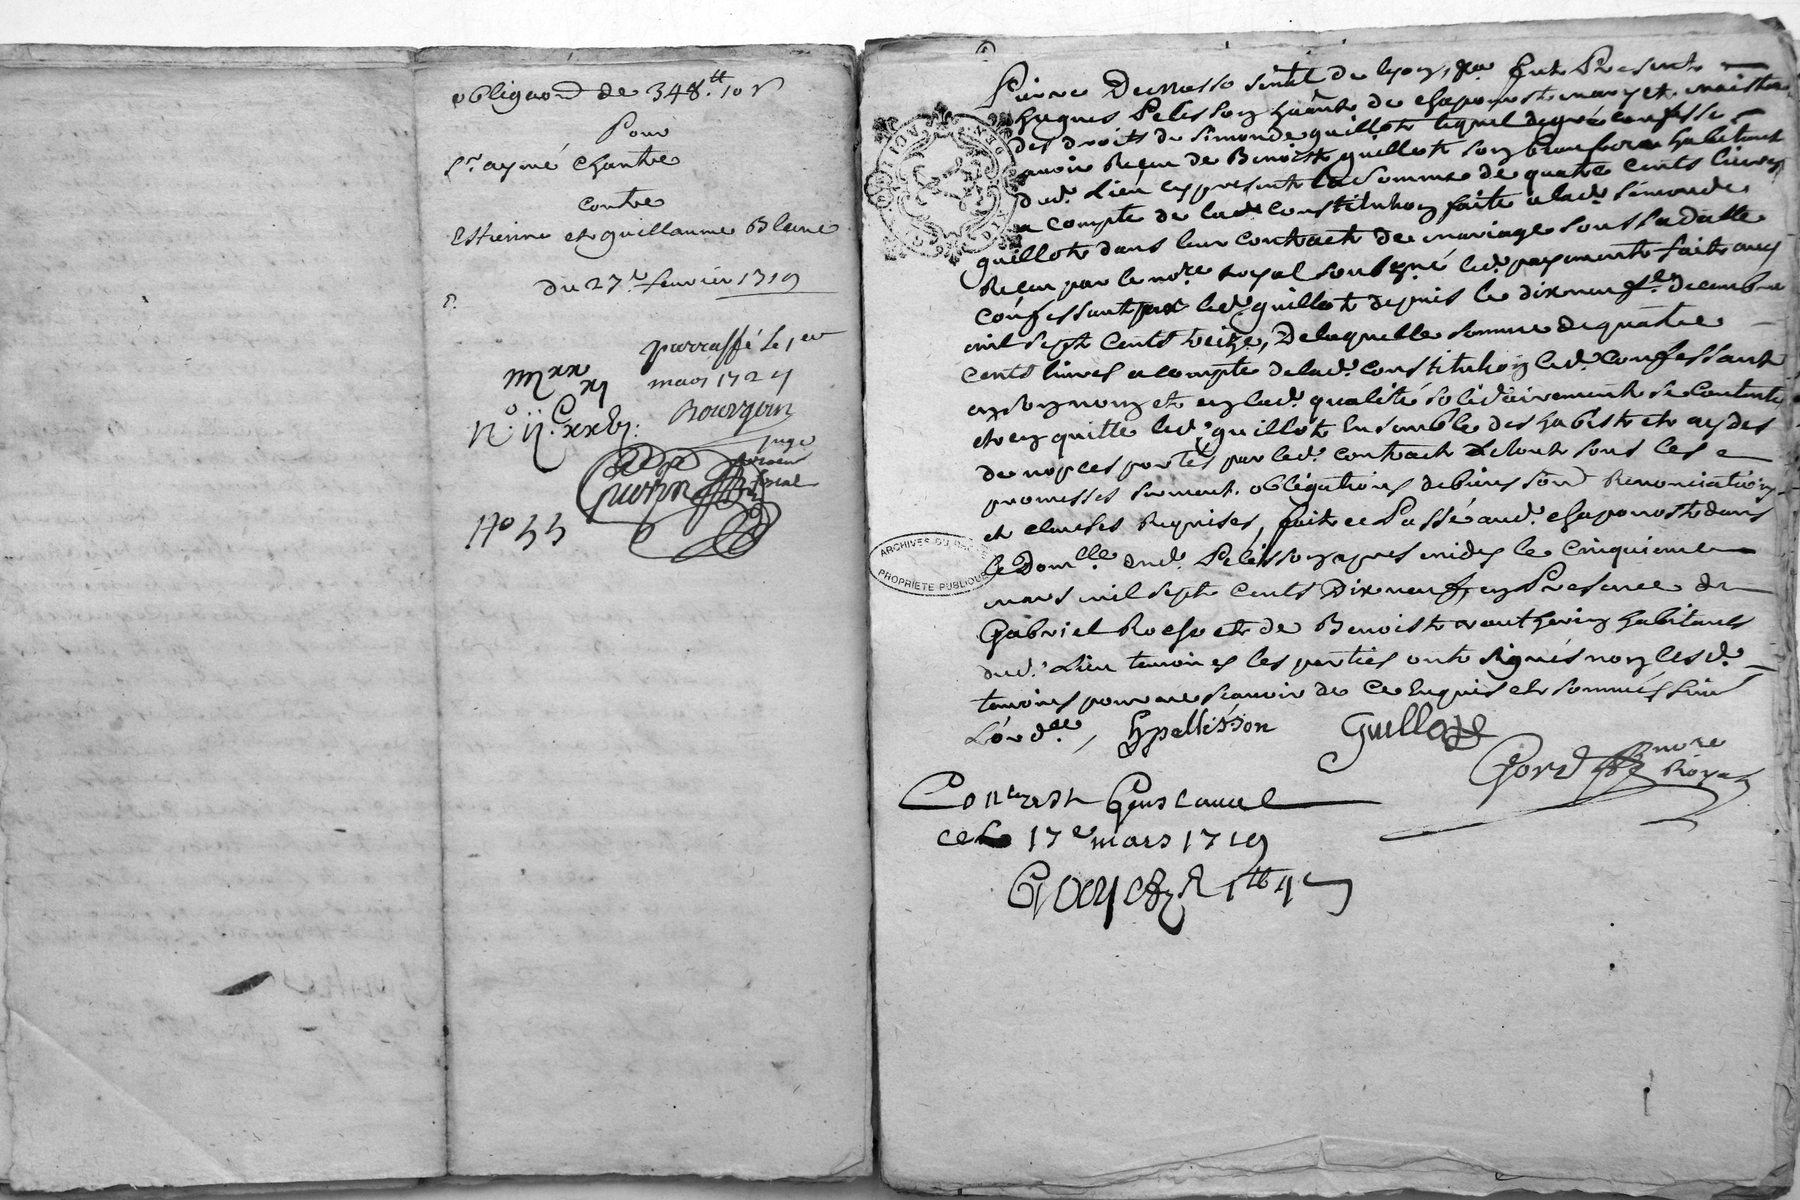 obligaon de 348.tt 10 s
Pour
Sr. aymé Chantre
contre
Estienne et guillaume Blanc
du 27e. feuvrier 1719
parraffé le 1er
mars 1724
Bourgoin
juge
Guerin
No 55
Pierre Dumas sentl de lyon, fut Present
hugues Pelisson habitt de chaponost mary et maistre
des droits de Simonde guillot lequel de gré confesse
avoir Reçu de Benoist guillot son beaufrere habitant
dud. Lieu cy present la somme de quatre cents livres
a compte de lade constitution faite a lad. simonde
guillot dans leur contract de mariage sous sa datte
Reçu par le nore royal soubsigné led. payement fait aud
confessant par led. guillot depuis le dix neuf decembre
mil sept cents treize, De laquelle somme de quatre
cents livres a compte de lad. constitution led. confessant
en son nom et en lad. qualité solidairement se contente
et en quitte led. guillot ensemble des habits et
de nopces portés par led. contract Le tout sous les
promesses serment. obligations de biens Renonciations
et clauses Requises, fait et Passé aud. chaponost dans
le Domlle dud. Pelisson apres midy le cinquieme
mars mil sept cents Dix neuf, en Presence de
Gabriel Roche et de Benoist habitants
dud. Lieu temoins les parties ont signés non lesd.
temoins pour ne scavoir de ce Enquis et sommés suivt
L'ordce, hpellisson Guillot
nore
Royal
Contrerolé
ce 17e mars 1719
ARCHIVES DU
PROPRIETE PUBLIQUE